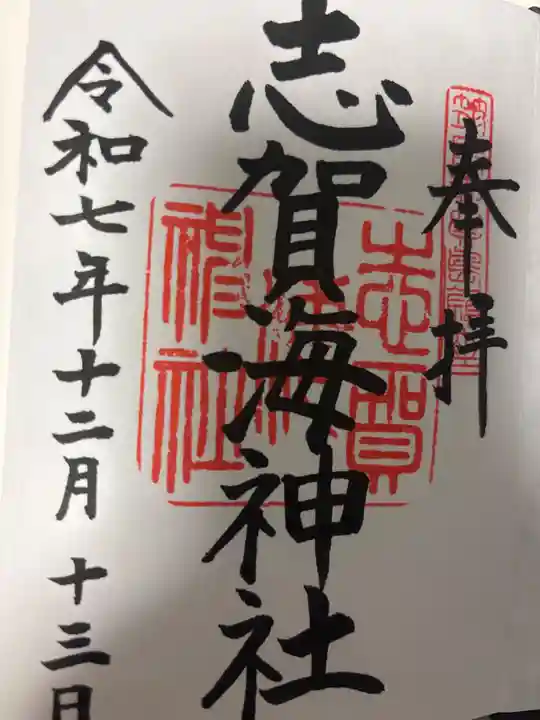 奉拝
志賀海神社
志賀海神社
令和七年十二月十三日